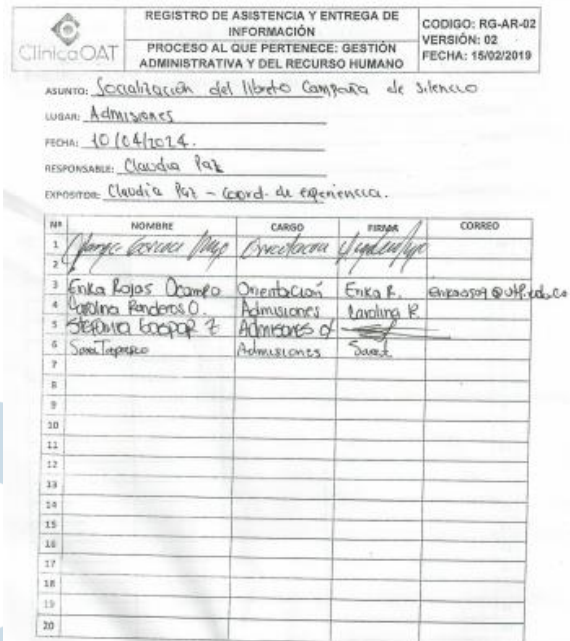 ClínicaOAT
REGISTRO DE ASISTENCIA Y ENTREGA DE
INFORMACIÓN
PROCESO AL QUE PERTENECE: GESTIÓN
ADMINISTRATIVA Y DEL RECURSO HUMANO
CODIGO: RG-AR-02
VERSIÓN: 02
FECHA: 15/02/2019
ASUNTO: Socialización del libreto Campaña de Silencio
LUGAR: Admisiones
FECHA: 10/04/2024.
RESPONSABLE: Claudia Paz
EXPOSITOR: Claudia Paz - Coord. de experiencia.
Nº NOMBRE CARGO FIRMA CORREO
1 Orientación
2
3 Erika Rojas Ocampo Orientación Erika R.
4 Carolina Randeros O. Admisiones Carolina R
5 Admisiones
6 Sara Admisiones
7
8
9
10
11
12
13
14
15
16
17
18
19
20